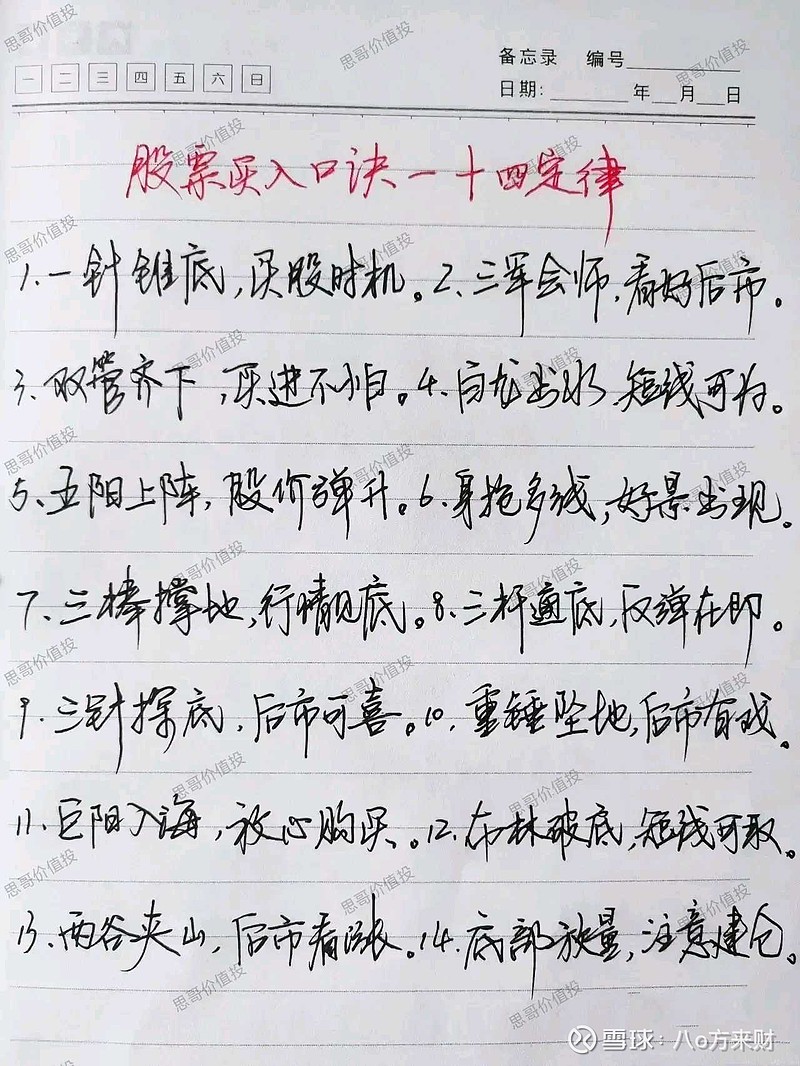 一 二 三 四 五 六 日
备忘录 编号
日期: 年 月 日
股票买入口诀一十四定律
1.一针锥底,买股时机。2、三军会师,看好后市。
3、双管齐下,买进不怕。4、白龙出水,短线可为。
5、五阳上阵,股价弹升。6、身抱多线,好景出现。
7、三棒撑地,行情见底。8、三杆通底,反弹在即。
9.三针探底,后市可喜。10.重锤坠地,后市有戏、
11.巨阳入海,放心购买。12.布林破底,短线可取、
13.两谷夹山,后市看涨。14.底部放量,注意建仓。
思哥价值投
雪球：八o方来财